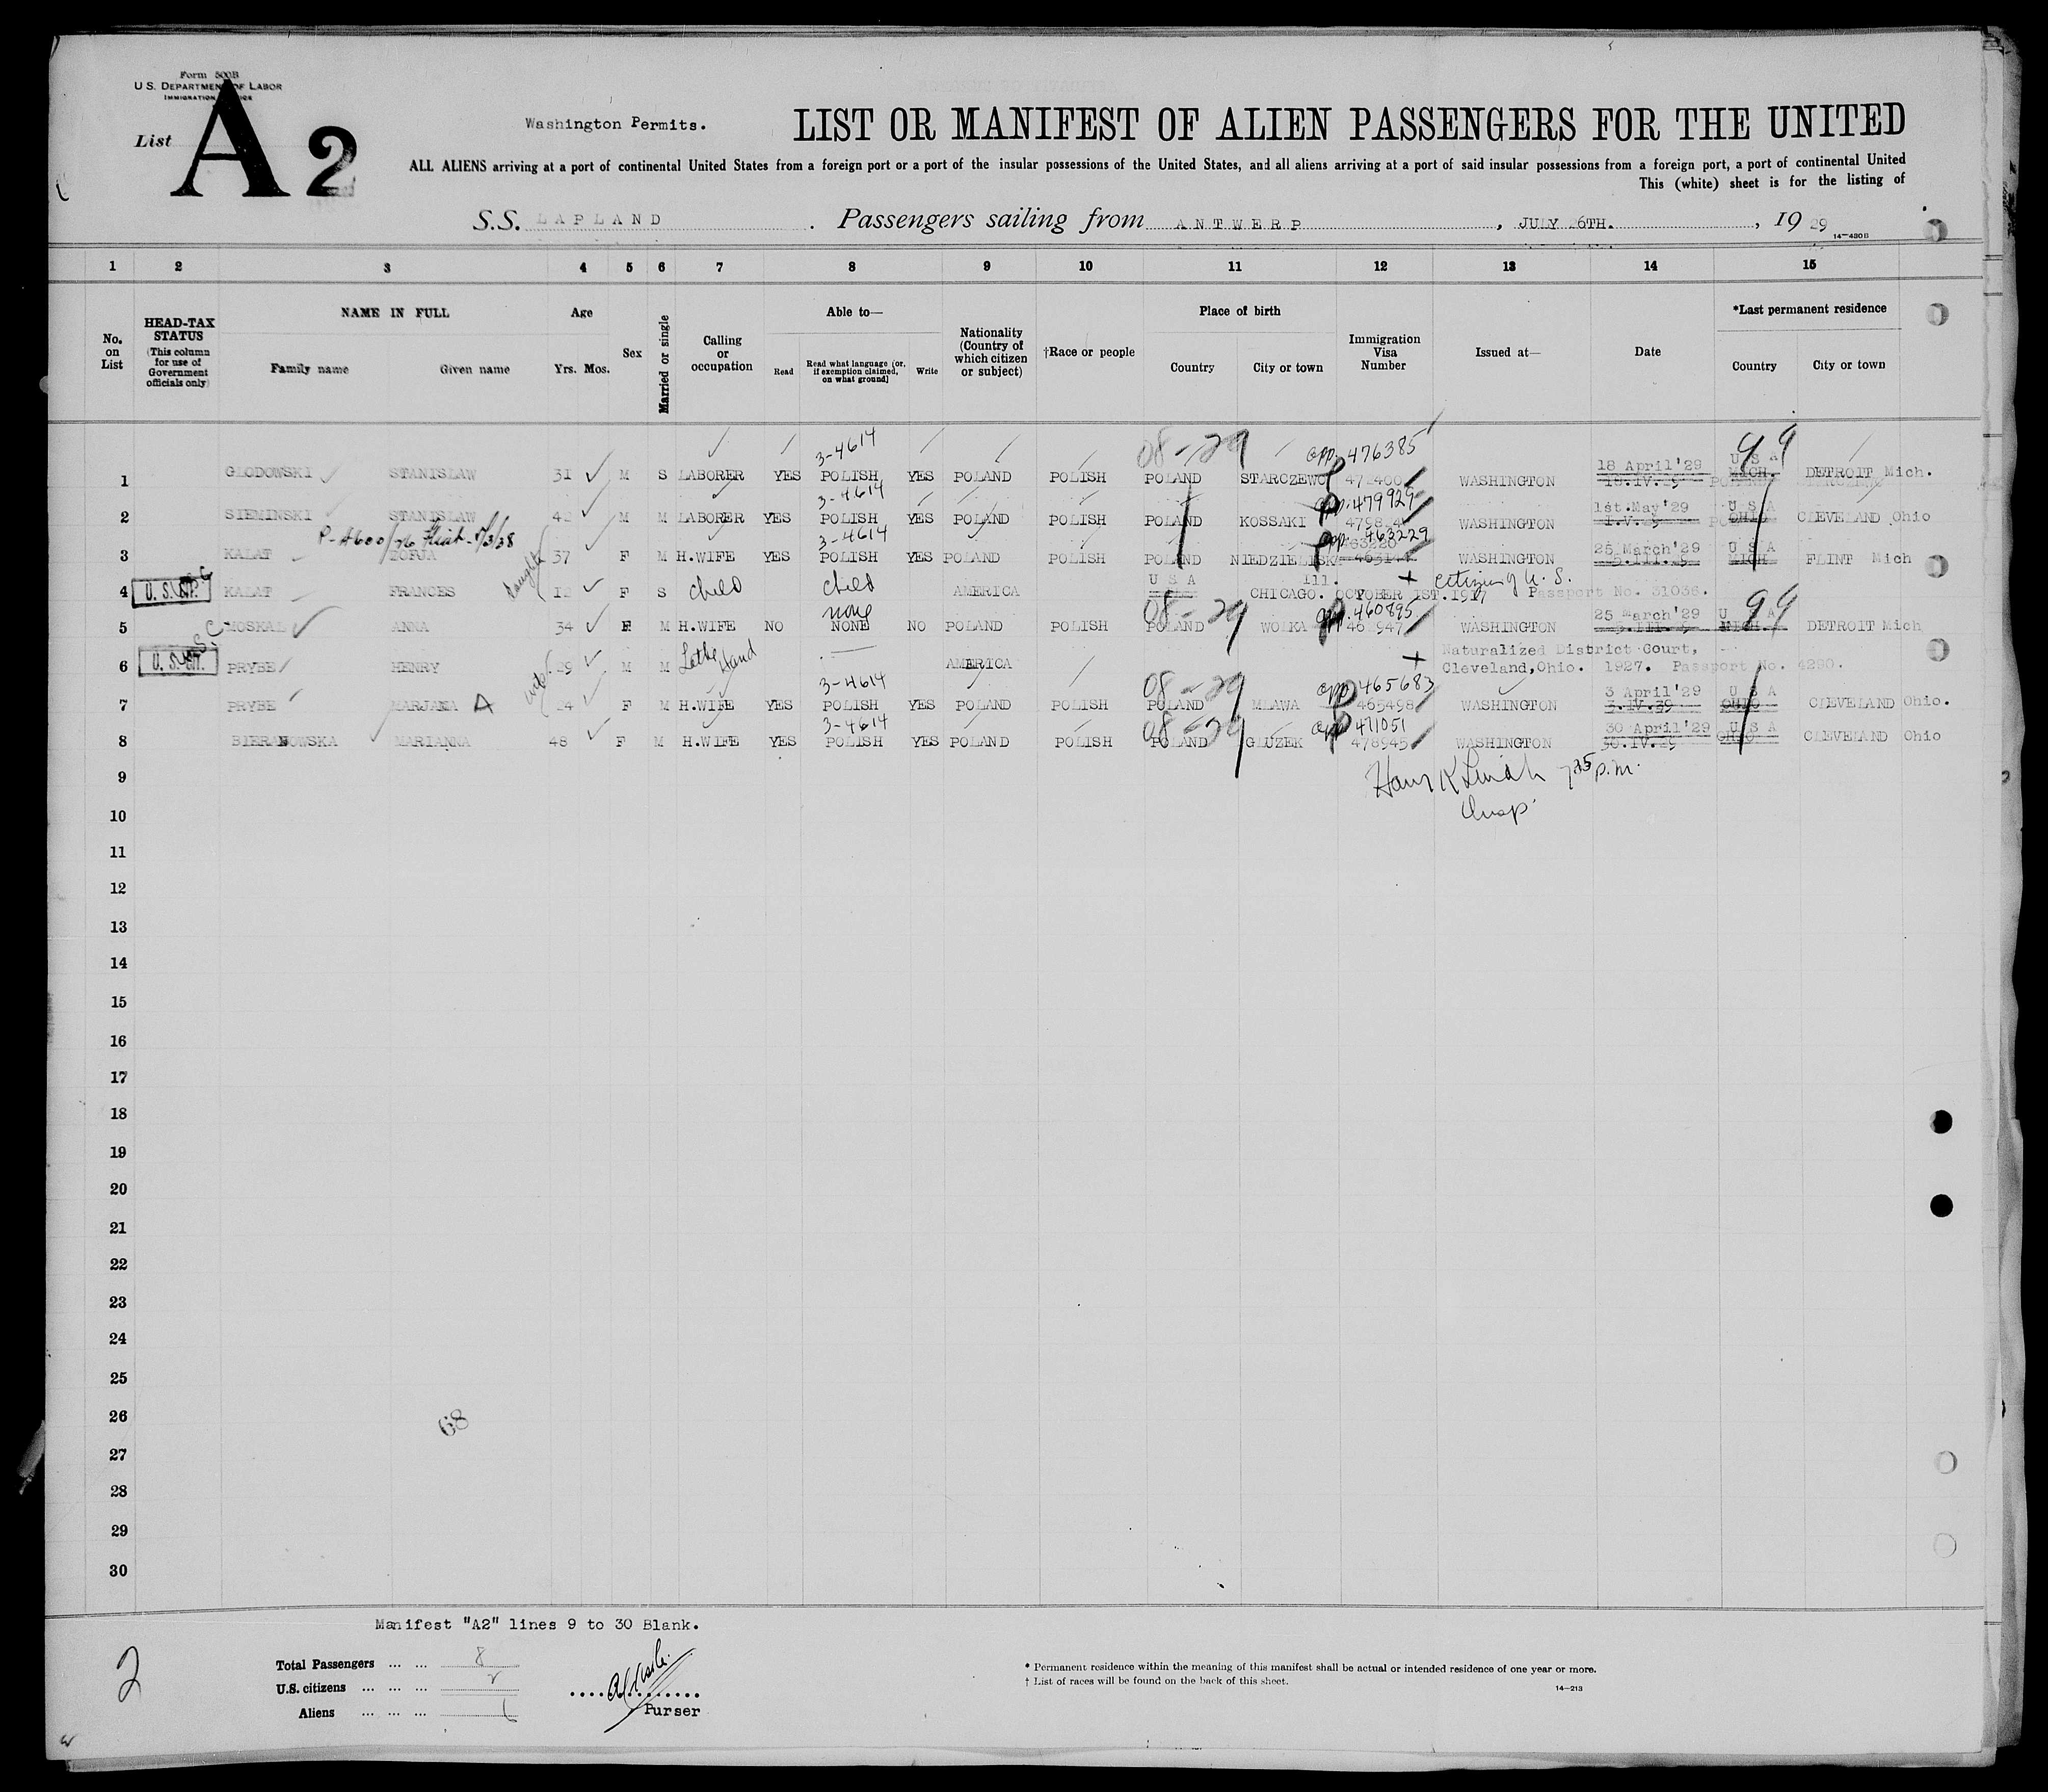 Form 500B
U.S. DEPARTMENT OF LABOR
IMMIGRATION SERVICE
List A 2
Washington Permits.
LIST OR MANIFEST OF ALIEN PASSENGERS FOR THE UNITED
ALL ALIENS arriving at a port of continental United States from a foreign port or a port of the insular possessions of the United States, and all aliens arriving at a port of said insular possessions from a foreign port, a port of continental United
This (white) sheet is for the listing of
S.S. LAPLAND. Passengers sailing from ANTWERP, JULY 26TH., 19 29
14-430B
1 2 3 4 5 6 7 8 9 10 11 12 13 14 15
No. on List
HEAD-TAX STATUS (This column for use of Government officials only)
NAME IN FULL
Family name Given name
Age
Yrs. Mos.
Sex
Married or single
Calling or occupation
Able to—
Read Read what language (or, if exemption claimed, on what ground) Write
Nationality (Country of which citizen or subject)
†Race or people
Place of birth
Country City or town
Immigration Visa Number
Issued at—
Date
*Last permanent residence
Country City or town
3-4614 08-29 app. 476385 99
18 April '29 U S A
1 GLODOWSKI STANISLAW 31 M S LABORER YES POLISH YES POLAND POLISH POLAND STARCZEWO WASHINGTON 18.IV.29 MICH. DETROIT Mich.
3-4614 app. 479929 1st.May '29 U S A
2 SIEMINSKI STANISLAW 42 M M LABORER YES POLISH YES POLAND POLISH POLAND KOSSAKI WASHINGTON I.V.29 OHIO CLEVELAND Ohio
3-4614 app. 463229 25 March '29 U S A
3 KALAT 37 F M H.WIFE YES POLISH YES POLAND POLISH POLAND WASHINGTON MICH FLINT Mich
daughter
U S A Ill. Citizen of U. S.
4 U. S. KALAT FRANCES F S child child AMERICA CHICAGO. OCTOBER 1ST.1917 Passport No. 31036.
none 08-29 app. 460895 25 march '29 U S A 99
5 MOSKAL ANNA 34 F M H.WIFE NO NONE NO POLAND POLISH POLAND WOLKA WASHINGTON MICH. DETROIT Mich
Naturalized District Court,
6 U. S. PRYBE HENRY 29 M M Lathe Hand AMERICA Cleveland,Ohio. 1927. Passport No. 4290.
wife
3-4614 08-29 app. 465683 3 April '29 U S A
7 PRYBE MARJANA A 24 F M H.WIFE YES POLISH YES POLAND POLISH POLAND MLAWA 465498 WASHINGTON 3.IV.29 OHIO CLEVELAND Ohio.
3-4614 08-29 app 471051 30 April '29 U S A
8 BIERANOWSKA MARIANNA 48 F M H.WIFE YES POLISH YES POLAND POLISH POLAND GLUZEK 478945 WASHINGTON 30.IV.29 OHIO CLEVELAND Ohio
9
p.m.
10
Insp.
11
12
13
14
15
16
17
18
19
20
21
22
23
24
25
26
68
27
28
29
30
Manifest "A2" lines 9 to 30 Blank.
2
Total Passengers ... ... 8
U.S. citizens ... ... ... 2
Aliens ... ... ...
Purser
* Permanent residence within the meaning of this manifest shall be actual or intended residence of one year or more.
† List of races will be found on the back of this sheet.
14-213